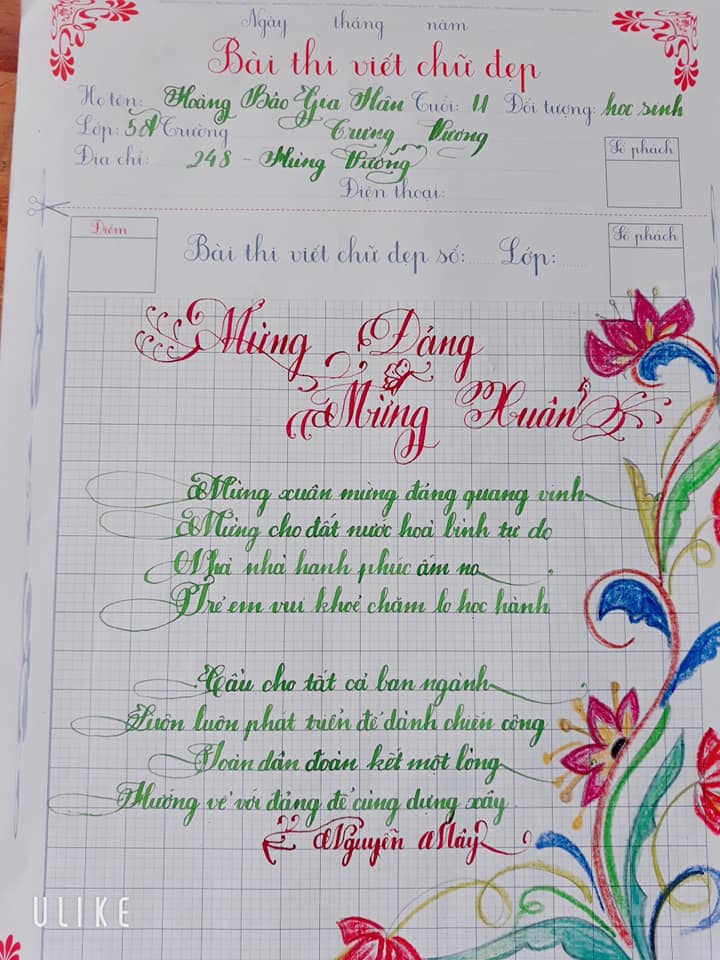 Ngày tháng năm
Bài thi viết chữ đẹp
Họ tên: Hoàng Bảo Gia Hân Tuổi: 11 Đối tượng: học sinh
Lớp: 5A Trường Trưng Vương
Địa chỉ: 248 - Hùng Vương
Điện thoại:
Số phách
Điểm
Bài thi viết chữ đẹp số: ...... Lớp: ......
Số phách
Mừng Đảng
Mừng Xuân
Mừng xuân mừng đảng quang vinh
Mừng cho đất nước hoà bình tự do
Nhà nhà hạnh phúc ấm no
Trẻ em vui khoẻ chăm lo học hành
Cầu cho tất cả ban ngành
Luôn luôn phát triển để dành chiến công
Toàn dân đoàn kết một lòng
Hướng về với đảng để cùng dựng xây
Nguyễn Mây
ULIKE